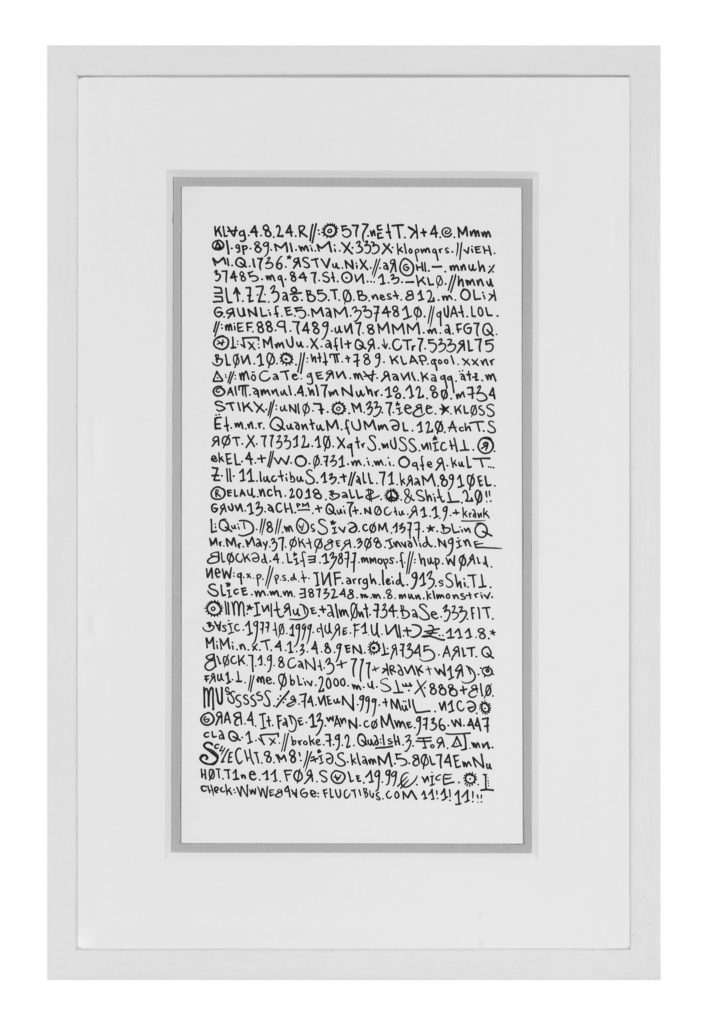 KLAg.4.8.24.R//:577.nEtT.K+4.@.Mmm
1.gp.89.MI.mi.Mi.X.333X.klopmqrs.//viEH.
MI.Q.1736.*ЯSTVu.NiX.//.aЯ HI.—.mnuh%
37485.mq.847.St.ON...1.3.—KLØ.//hmnu
B5.T.Ø.B.nest.812.m.OLiK
GRUNLif.E5.MaM.3374810.//qUAt.LOL.
//:miEF.88.9.7489.uN7.8MMM.m!a.FG7Q.
√x!MmUu.X.afl+QЯ.v.CTr7.533ЯL75
BLØN.10.//:httπ.+789.KLAP.qool.xxnr
Δ://:möCaTe!gERN.m∀.ЯaNI.Kaqq.ätz.m
©AITT.qmnul.4.hl7mNuhr.18.12.80/m734
STIKX.//:uNIØ.7.M.33.7:ieae.★.KLØSS
Ët.m.n.r.QuantuM.fUMmƏL.12Ø.AchT.S
ЯØT.X.773312.10.XqtrS.mUSS.niCHt.®.
ekEL.4.+//W.O.Ø.731.m.i.m.i.OqfeЯ.kulT...
Z.||.11.luctibuS.13.+//all.71.kRaM.8910EL.
®ELAU.nch.2018.BaLL &Shit⊥.20!!
GRUN.13.aCH.+Qui7t.NØCtu.Я1.19.+krank
LiQuiD.//8//.m sSiva.cØM.1377.*.BLinQ
Mr.Mr.May.37.ØKtØBER.308.Invalid.NgiNE
BLØCKƏd.4.Lif∃.13877.mmops.f//:hup.WØRLd.
NeW:q.x.p.//p.s.d.t.INF.arrgh.leid.913.sShi.T⊥.
SLiCE.m.m.m.∃873248.m.m.8.mun.klmonstriv.
||M*IN|tRUDE.+almØnt.734.BaSe.333.FIT.
B∀SiC.1977tØ.1999.dURE.F1U.NI+ .111.8.*
MiMi.n.X.T.4.1.3.4.8.9EN. 7345.ARLT.Q
BLØCK.7.1.9.8CaNt.3+77|+KRaNK+W1RD.
FRU1.⊥//me.ØbLiv.2000.m.u.S⊥ X.888+BLØ.
MUSSSSSS.%.74.NEuN.999.+MüLL.N1CƏ
GRAB.4.It.FaDE.13.WANN.CØMme.9736.W.447
CLaQ.1.√x!//broke.7.9.2.QuaLIsH.3.FØR. mn.
ScHLECHT.8.M8!//:iaS.klamM.5.8ØL74EmNu
HØT.T1ne.11.FØR.S LE.19.99 niCE.
CHECK:WWWE FLUCTIBUS.COM 11!1!11!!!